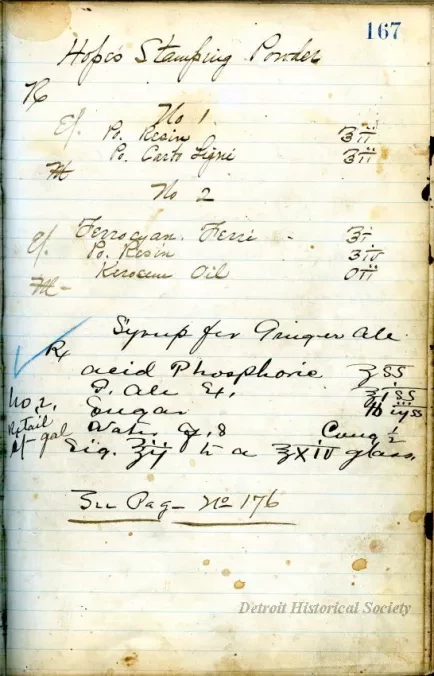 167
Hope's Stamping Powder
Rx
No 1.
Po. Resin ʒii
Po. Carbo Ligni ʒii
M
No 2
Ferrocyan. Ferri - ʒi
Po. Resin ʒiv
Kerocene Oil Oii
M -
Syrup for Ginger Ale
Rx
acid Phosphoric ʒss
G. Ale Ex. ʒiss
Sugar
Water Cong ½
No 2.
Retail
gal
Sig. ʒij to a ʒxiv glass.
See Page No 176
Detroit Historical Society